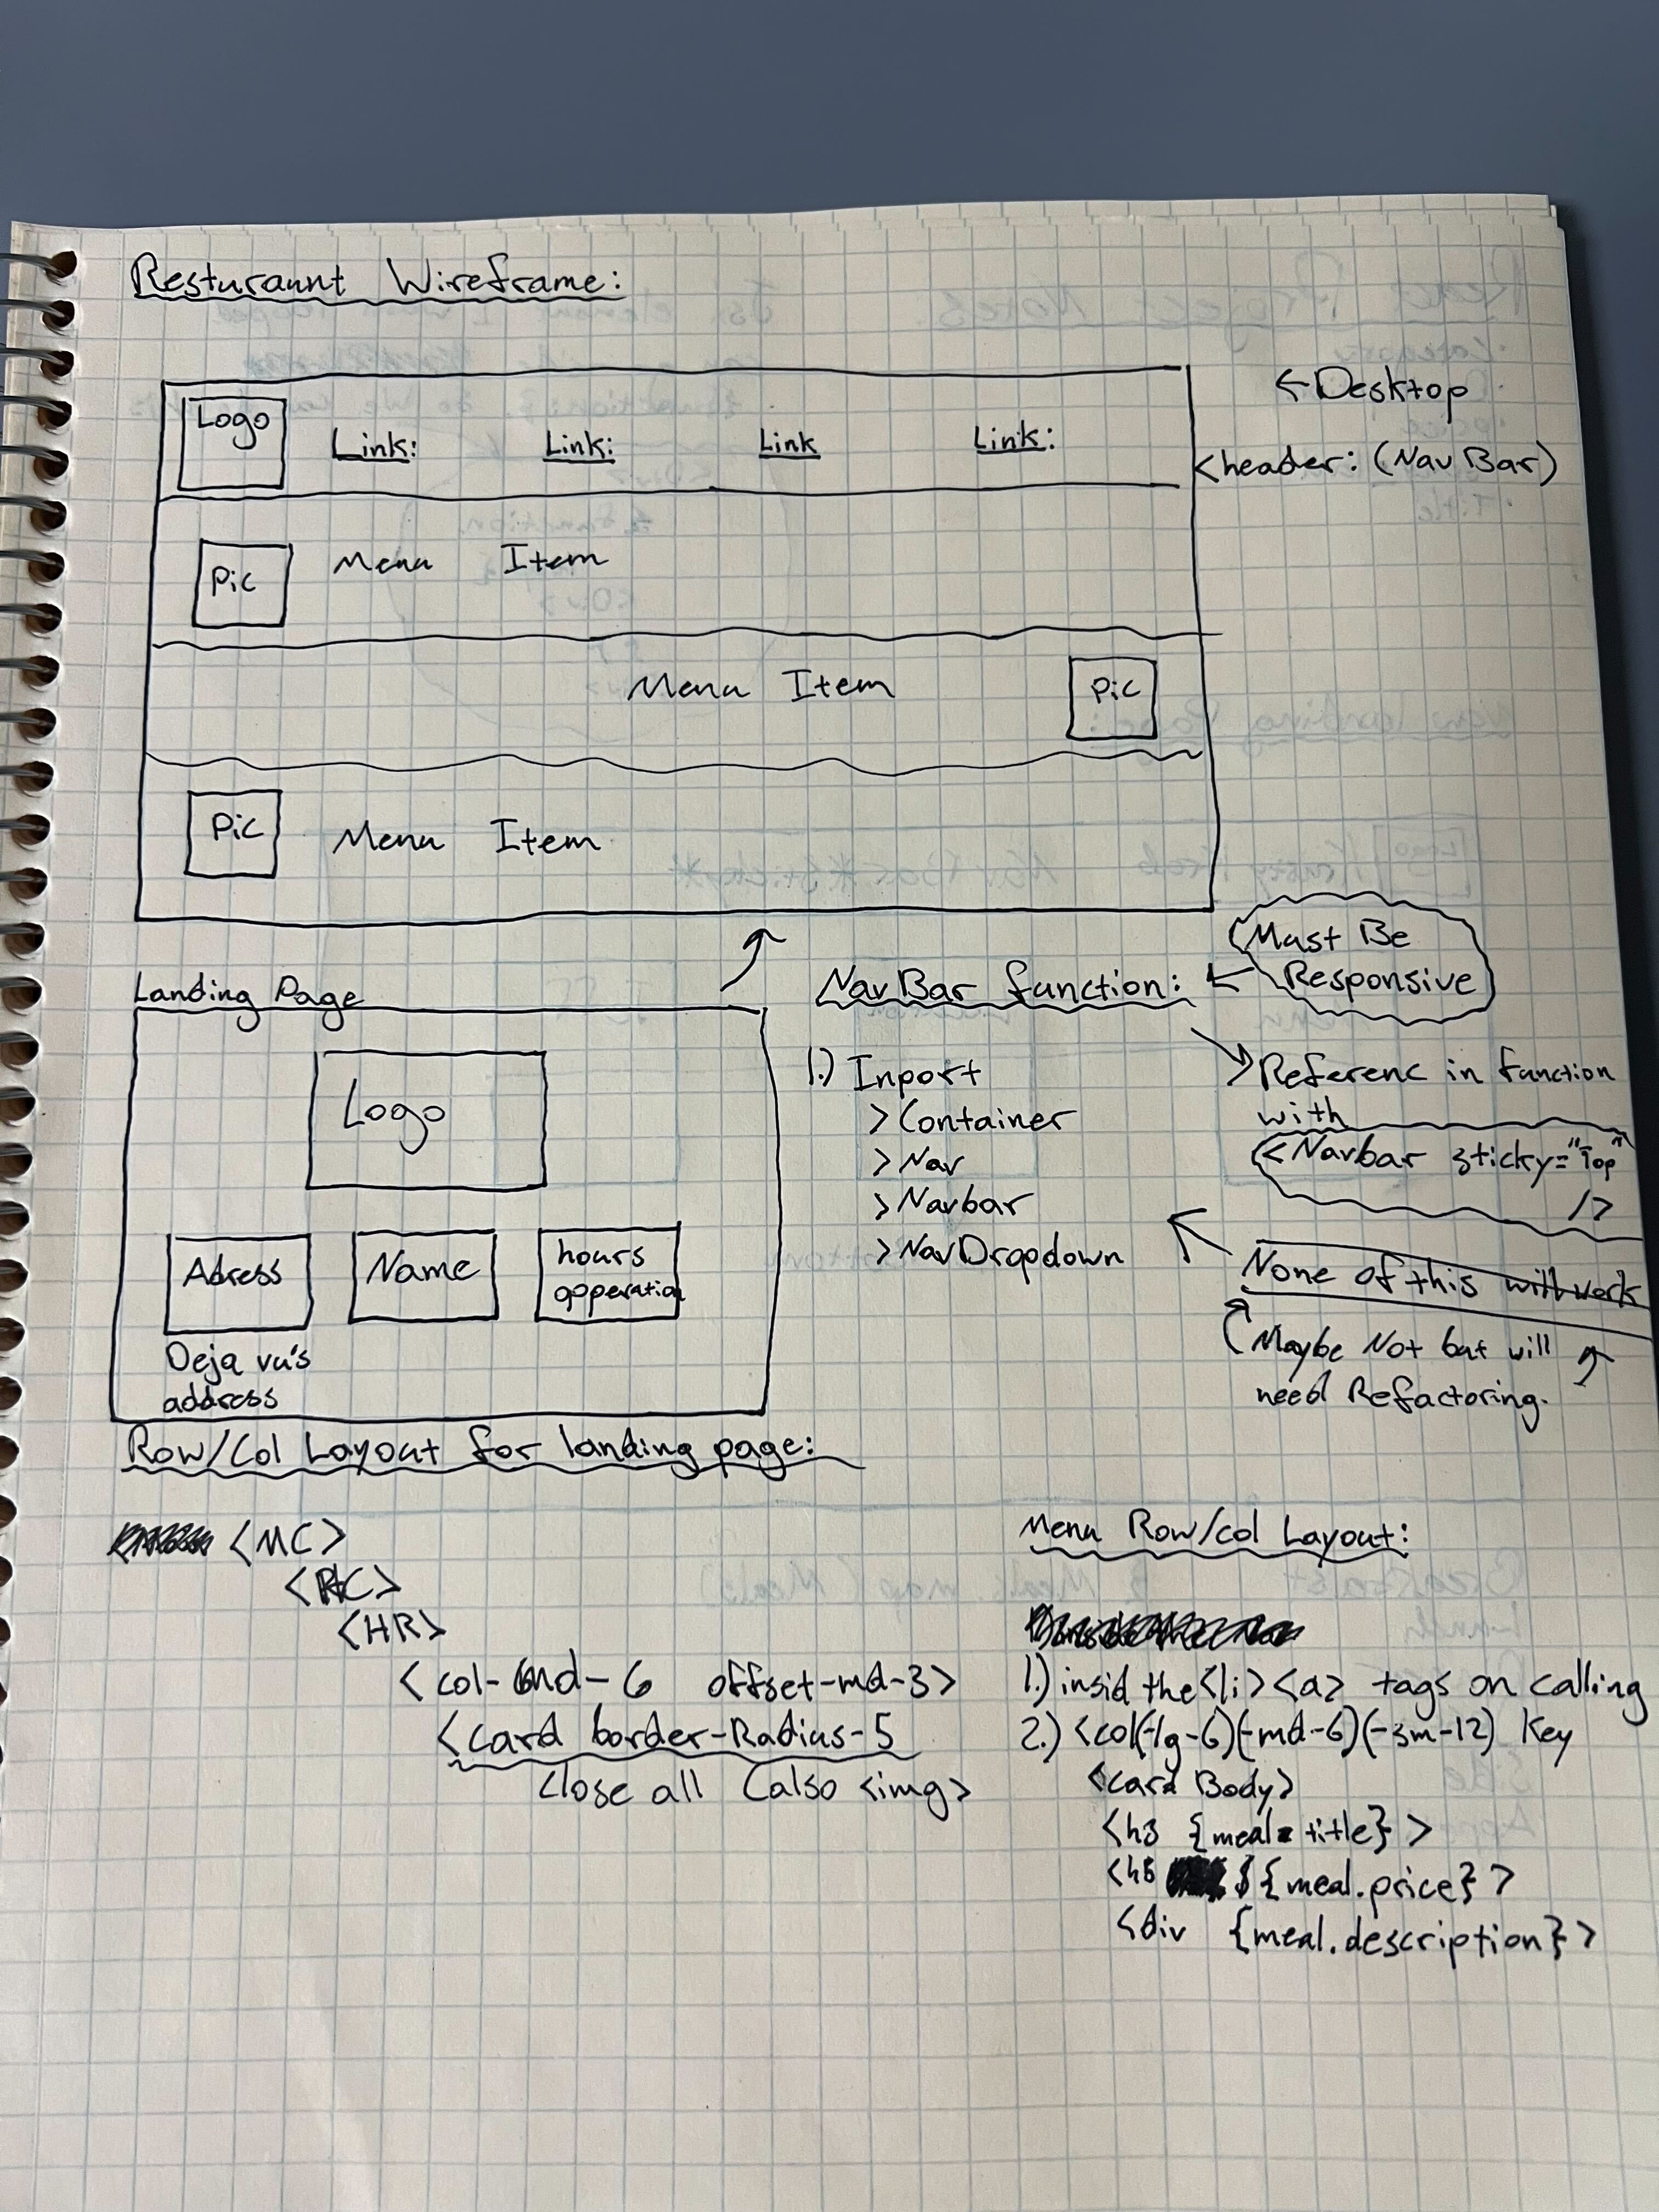 Resturaunt Wireframe:
Logo
Link: Link: Link Link:
← Desktop
<header: (NavBar)
Pic Menu Item
Menu Item Pic
Pic Menu Item
Must Be
Responsive
Landing Page
Logo
Adress
Name
hours
opperation
Deja vu's
address
NavBar function:
1.) Inport
> Container
> Nav
> Navbar
> NavDropdown
Referenc in function
with
<Navbar sticky="Top"
/>
None of this will work
Maybe Not but will
need Refactoring.
Row/Col Layout for landing page:
<MC>
<HR>
<col-md-6 offset-md-3>
<card border-Radius-5
Close all (also <img>
Menu Row/col Layout:
1.) insid the <li> <a> tags on calling
2.) <col(-lg-6)(-md-6)(-sm-12) Key
<card Body>
<h3 {meal. title} >
<h5 ${meal.price} >
<div {meal.description}>